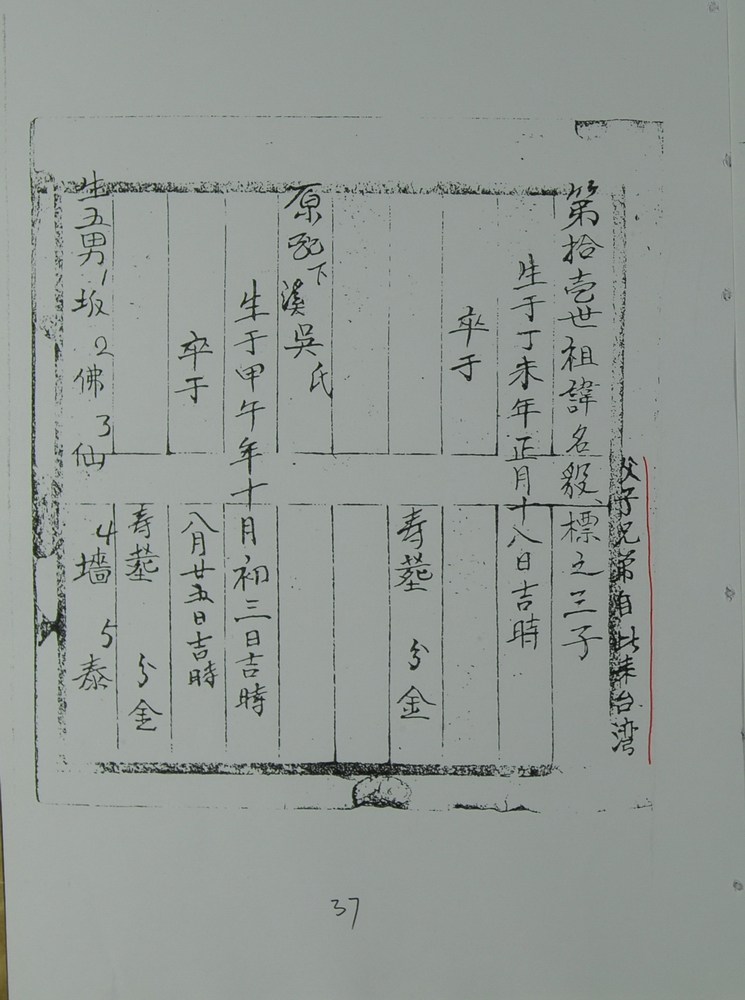 父子兄弟自此来台湾
第拾壱世祖諱名毅、標之三子
生于丁未年正月十八日吉時
卒于
寿塋 分金
原配下溪吳氏
生于甲午年十月初三日吉時
卒于 八月廿五日吉時
寿塋 分金
生五男1坂 2佛 3仙 4墻 5泰
37